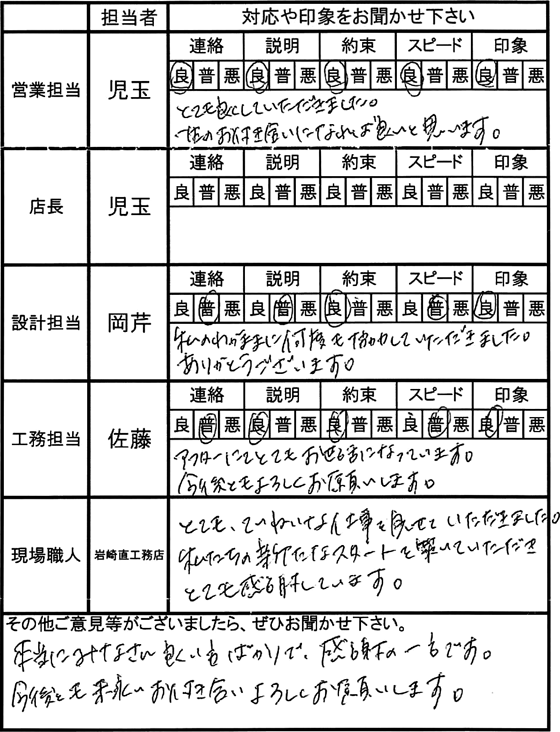 担当者 対応や印象をお聞かせ下さい
連絡 説明 約束 スピード 印象
営業担当 児玉 良 普 悪 良 普 悪 良 普 悪 良 普 悪 良 普 悪
とても良くしていただきました。
一生のお付き合いになればと思います。
連絡 説明 約束 スピード 印象
店長 児玉 良 普 悪 良 普 悪 良 普 悪 良 普 悪 良 普 悪
連絡 説明 約束 スピード 印象
設計担当 岡芹 良 普 悪 良 普 悪 良 普 悪 良 普 悪 良 普 悪
私のわがままに何度も協力していただきました。
ありがとうございます。
連絡 説明 約束 スピード 印象
工務担当 佐藤 良 普 悪 良 普 悪 良 普 悪 良 普 悪 良 普 悪
アフターにてとてもお世話になっています。
今後ともよろしくお願いします。
現場職人 岩崎直工務店
とても、ていねいな仕事を見せていただきました。
私たちの新たなスタートを築いていただき
とても感謝しています。
その他ご意見等がございましたら、ぜひお聞かせ下さい。
本当にみなさん良い方ばかりで、感謝の一言です。
今後とも末永いお付き合いよろしくお願いします。